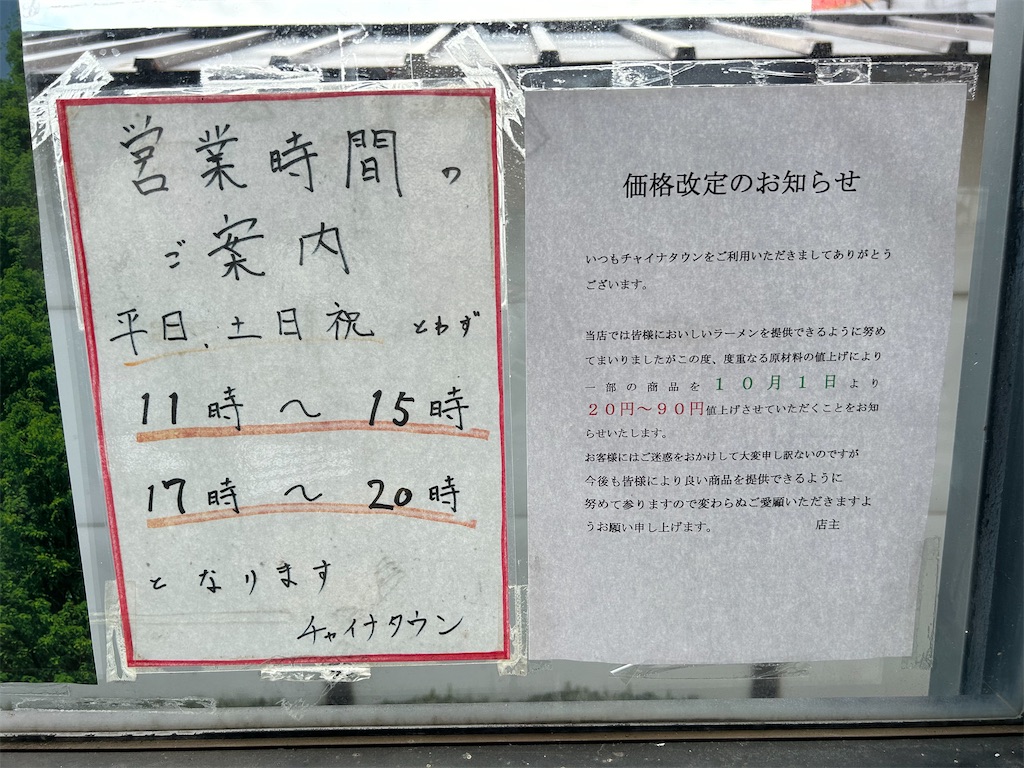 営業時間の
ご案内
平日、土日祝 とわず
11時〜15時
17時〜20時
となります
チャイナタウン
価格改定のお知らせ
いつもチャイナタウンをご利用いただきましてありがとう
ございます。
当店では皆様においしいラーメンを提供できるように努め
てまいりましたがこの度、度重なる原材料の値上げにより
一部の商品を１０月１日より
２０円〜９０円値上げさせていただくことをお知
らせいたします。
お客様にはご迷惑をおかけして大変申し訳ないのですが
今後も皆様により良い商品を提供できるように
努めて参りますので変わらぬご愛顧いただきますよ
うお願い申し上げます。 店主